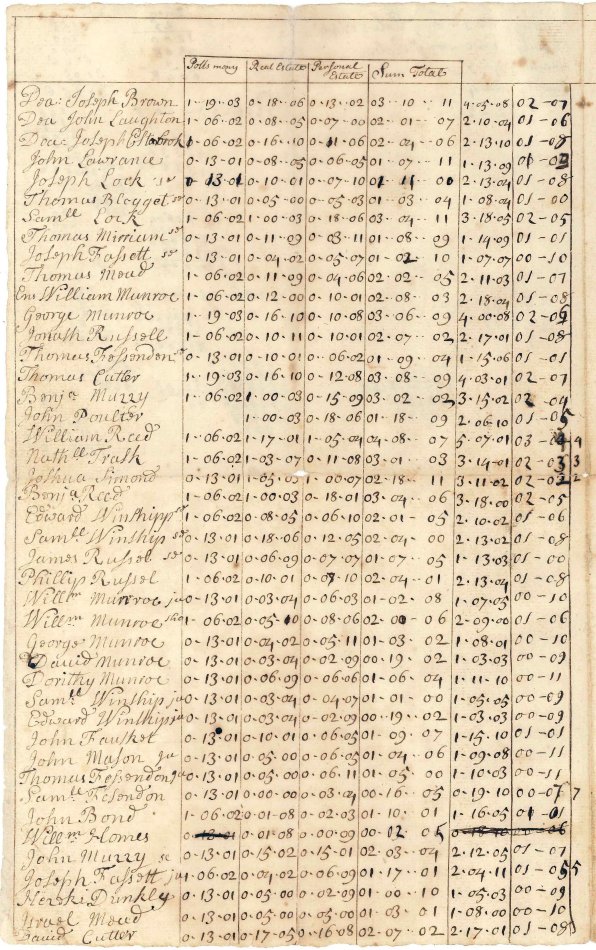 Polls mony Real Estate Personal Estate Sum Total
Dea: Joseph Brown 1-19-03 0-18-06 0-13-02 03-10-11 4-05-08 02-07
Dea John Laughton 1-06-02 0-08-05 0-07-00 02-01-07 2-10-04 01-06
Dea: Joseph Estabrok 1-06-02 0-16-10 0-11-06 02-04 2-13-10 01-08
John Lawrance 0-13-01 0-08-05 0-06-05 01-07-11 1-13-09
Joseph Lock se 0-13-01 0-10-01 0-07-10 2-13-04 01-08
Thomas Blogget se 0-13-01 0-05-00 0-05-03 01-03-04 1-08-04 01-00
Samll Lock 1-06-02 1-00-03 0-18-06 03-04-11 3-18-05 02-05
Thomas Mirriam se 0-13-01 0-11-09 0-03-11 01-08-09 1-14-09 01-01
Joseph Fassett se 0-13-01 0-04-02 0-05-07 01-02-10 1-07-07 00-10
Thomas Mead 1-06-02 0-11-09 0-04-06 02-02-05 2-11-03 01-07
Ens William Munroe 1-06-02 0-12-00 0-10-01 02-08-03 2-18-04 01-08
George Munroe 1-19-03 0-16-10 0-10-08 03-06-09 4-00-08
Jonath Russell 1-06-02 0-10-11 0-10-01 02-07-02 2-17-01 01-08
Thomas Fessenden se 0-13-01 0-10-01 0-06-02 01-09-04 1-15-06 01-01
Thomas Cutler 1-19-03 0-16-10 0-12-08 03-08-09 4-03-01 02-07
Benja Muzzy 1-06-02 1-00-03 0-15-09 03-02-02 3-15-02 02-04
John Poulter 1-00-03 0-18-06 01-18-09 2-06-10 01-05
William Reed 1-06-02 1-17-01 1-05-04 04-08-07 5-07-01 03-04 4
Nathll Trask 1-06-02 1-03-07 0-11-08 03-01-03 3-14-01 02-03 3
Joshua Simond 0-13-01 1-05-03 1-00-07 02-18-11 3-11-02 02-02 2
Benja Reed 1-06-02 1-00-03 0-18-01 03-04-06 3-18-00 02-05
Edward Winshipp se 1-06-02 0-08-05 0-06-10 02-01-05 2-10-02 01-06
Samll Winship se 0-13-01 0-18-06 0-12-05 02-04-00 2-13-02 01-08
James Russel se 0-13-01 0-06-09 0-07-07 01-07-05 1-13-03 01-00
Phillip Russel 1-06-02 0-10-01 0-07-10 02-04-01 2-13-04 01-08
Willm Munroe ju 0-13-01 0-03-04 0-06-03 01-02-08 1-07-05 00-10
Willm Munroe 1-06-02 0-05-10 0-08-06 02-00-06 2-09-00 01-06
George Munroe 0-13-01 0-04-02 0-05-11 01-03-02 1-08-01 00-10
David Munroe 0-13-01 0-03-04 0-02-09 00-19-02 1-03-03 00-09
Dorithy Munroe 0-13-01 0-06-09 0-06-06 01-06-04 1-11-10 00-11
Samll Winship ju 0-13-01 0-03-04 0-04-07 01-01-00 1-05-05 00-09
Edward Winship ju 0-13-01 0-03-04 0-02-09 00-19-02 1-03-03 00-09
John Fausket 0-13-01 0-10-01 0-06-05 01-09-07 1-15-10 01-01
John Mason ju 0-13-01 0-05-00 0-06-05 01-04-06 1-09-08 00-11
Thomas Fessendon ju 0-13-01 0-05-00 0-06-11 01-05-00 1-10-03 00-11
Samll Fesendon 0-13-01 0-00-00 0-03-04 00-16-05 0-19-10 00-07 7
John Bond 1-06-02 0-01-08 0-02-03 01-10-01 1-16-05 01-01
Willm Homes 0-13-01 0-01-08 0-00-09 00-02-05 0-18-10 00-06
John Muzzy se 0-13-01 0-15-02 0-15-01 02-03-04 2-12-05 01-07
Joseph Fassett ju 1-06-02 0-04-02 0-06-09 01-17-01 2-04-11 01-05 5
Hezeki Dunkly 0-13-01 0-05-00 0-02-09 01-00-10 1-05-03 00-09
Israel Mead 0-13-01 0-05-00 0-05-00 01-03-01 1-08-00 00-10
David Cutler 0-13-01 0-17-05 0-16-08 02-07-02 2-17-01 01-08